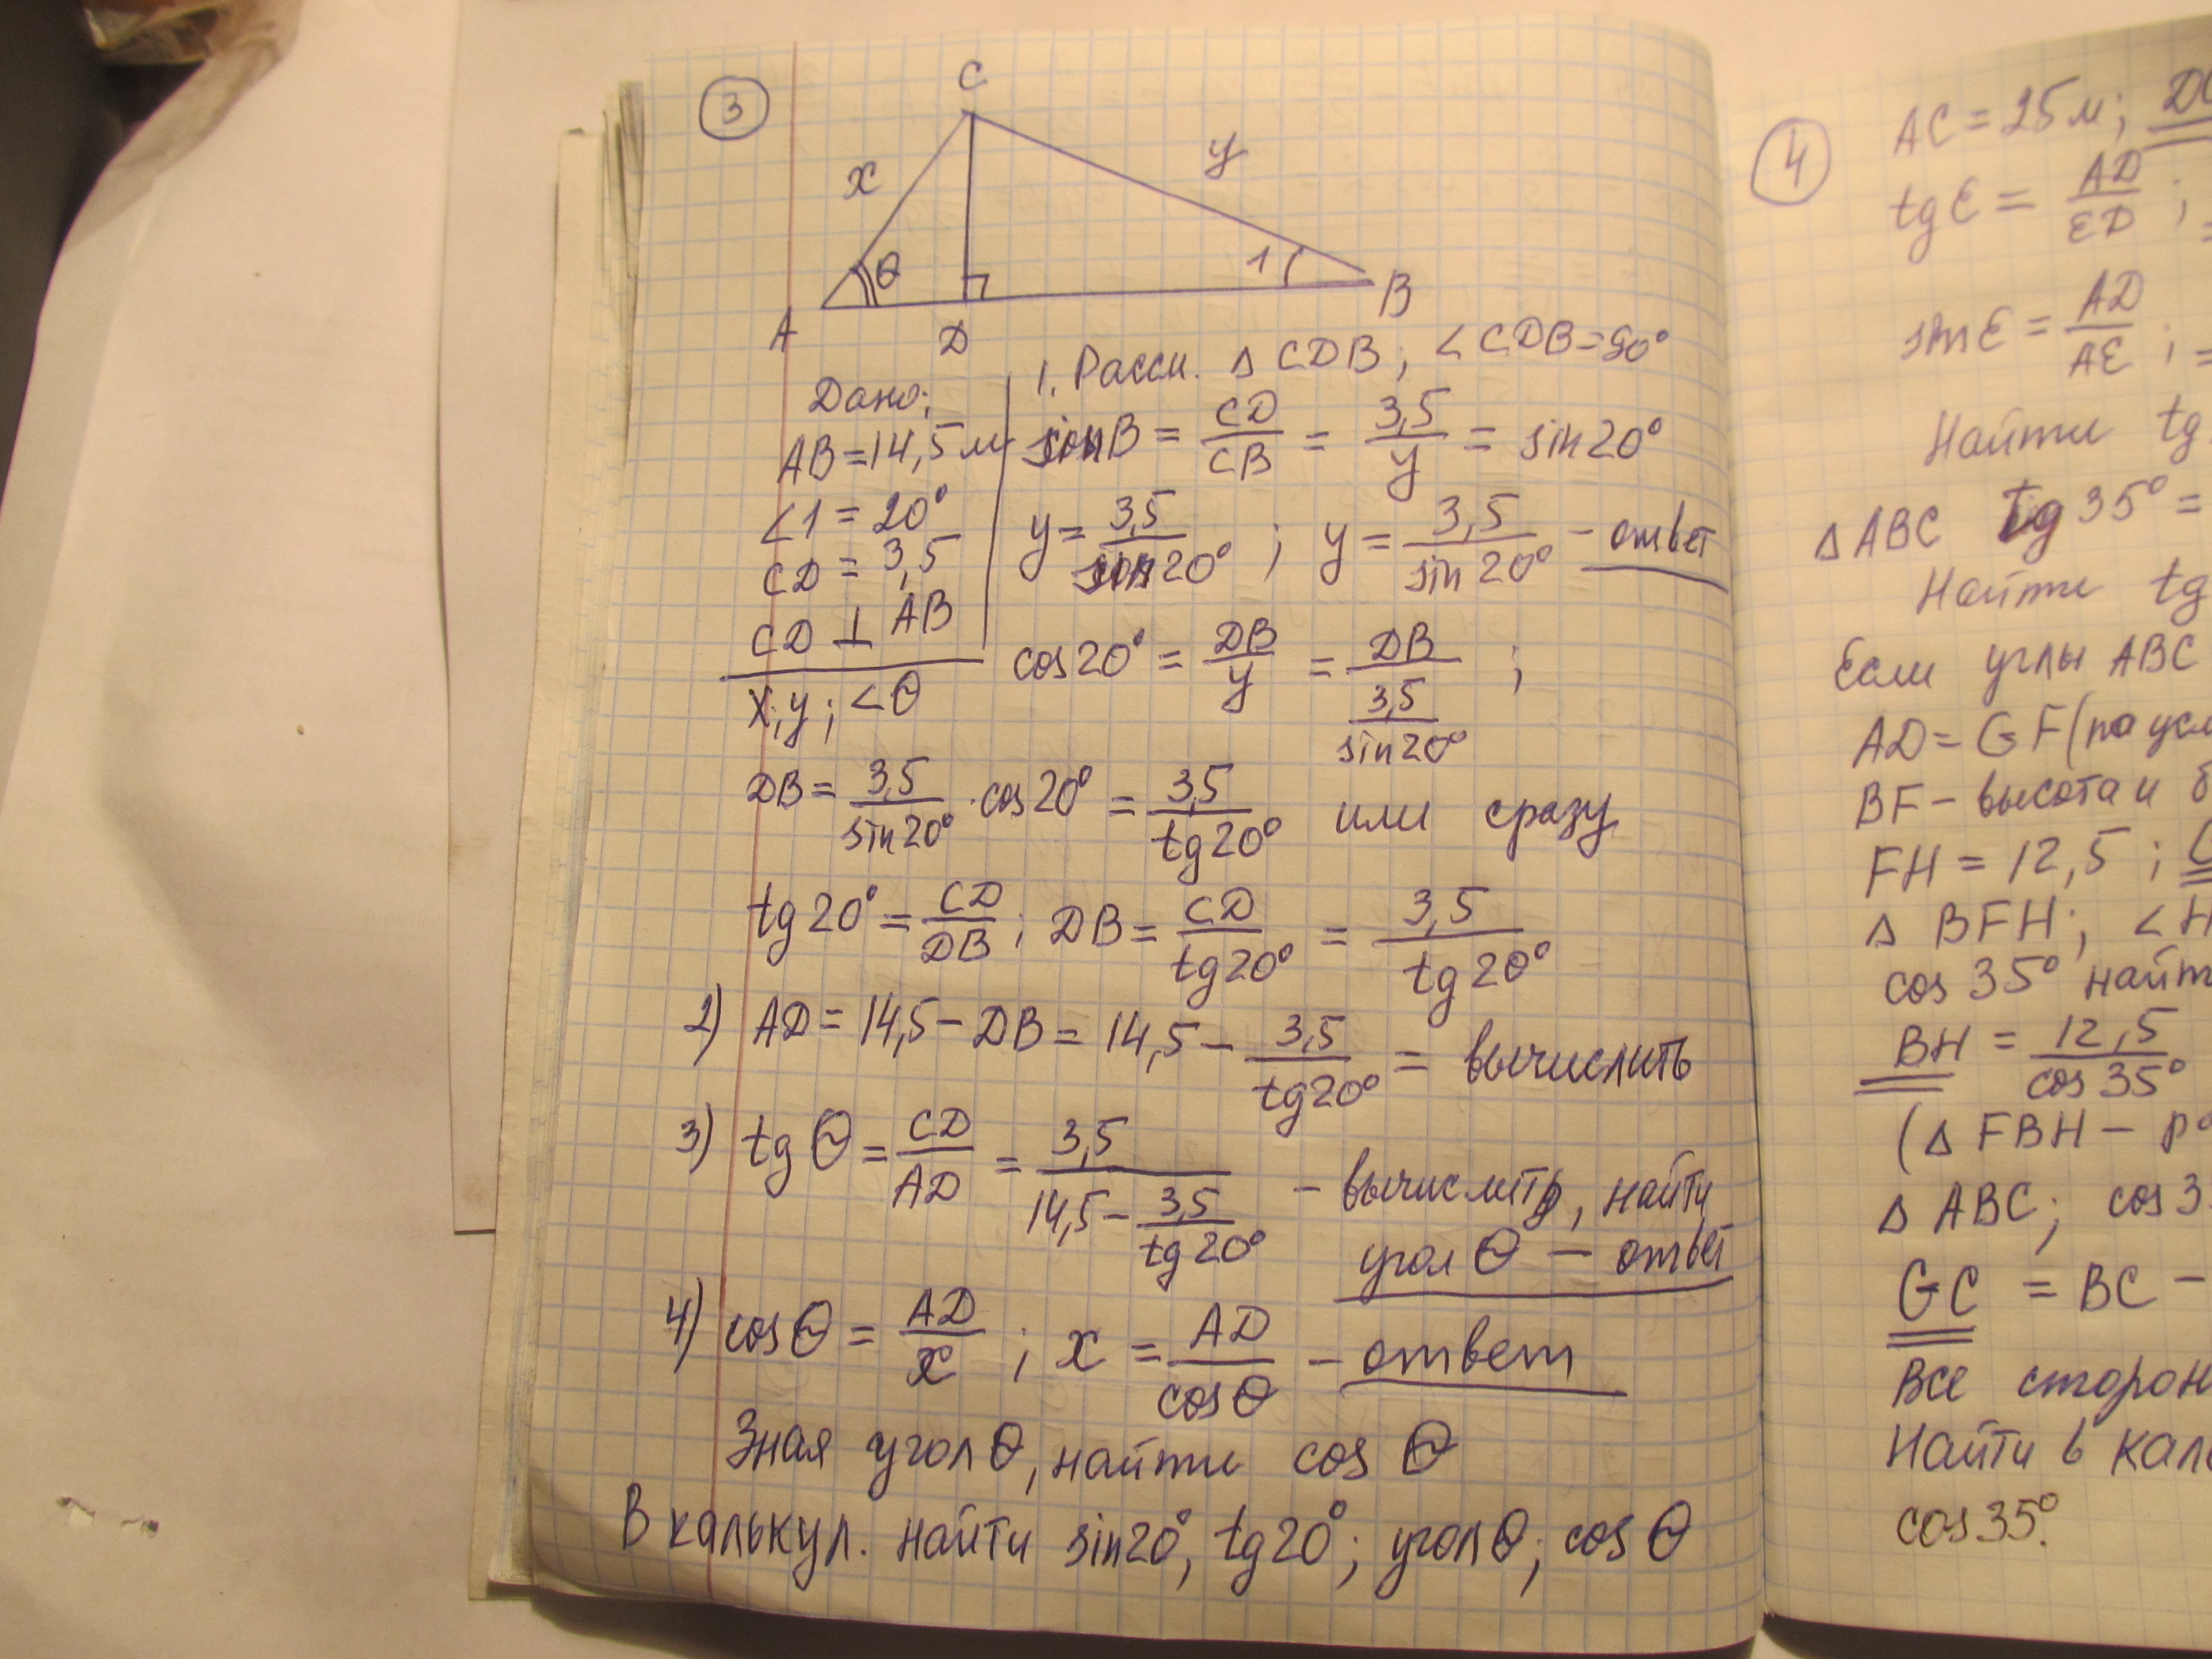 3
C
x
y
θ
1
A
D
B
Дано:
AB = 14,5 м
∠1 = 20°
CD = 3,5
CD ⊥ AB
x, y; ∠θ
1. Рассм. Δ CDB; ∠CDB = 90°
sin B = CD/CB = 3,5/y = sin 20°
y = 3,5/sin 20°; y = 3,5/sin 20° – ответ
cos 20° = DB/y = DB/(3,5/sin 20°);
DB = 3,5/sin 20° · cos 20° = 3,5/tg 20° или сразу
tg 20° = CD/DB; DB = CD/tg 20° = 3,5/tg 20°
2) AD = 14,5 – DB = 14,5 – 3,5/tg 20° = вычислить
3) tg θ = CD/AD = 3,5/(14,5 – 3,5/tg 20°) – вычислить, найти
угол θ – ответ
4) cos θ = AD/x; x = AD/cos θ – ответ
Зная угол θ, найти cos θ
В калькул. найти sin 20°, tg 20°; угол θ; cos θ
4
AC = 25 м;
tg E = AD/ED;
sin E = AD/AE;
Найти tg
Δ ABC tg 35° =
Найти tg
Если углы ABC
AD = GF (по
BF – высота и
FH = 12,5;
Δ BFH; ∠
cos 35°
BH = 12,5/cos 35°
(Δ FBH –
Δ ABC; cos
GC = BC –
Все
Найти в
cos 35°.